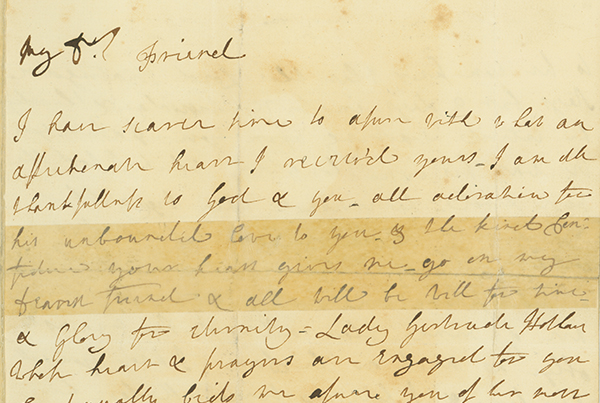 My Dr. Friend
I have scarce time to assure with what an
affectionate heart I receiv'd yours - I am all
thankfullness to God & you - all adoration for
his unbounded Love to you - & the kind Con-
fidence your heart gives me - go on my
dearest friend & all will be well for time
& Glory for eternity - Lady Gertrude Hotham
whose heart & prayers are engaged for you
bids me assure you of her most